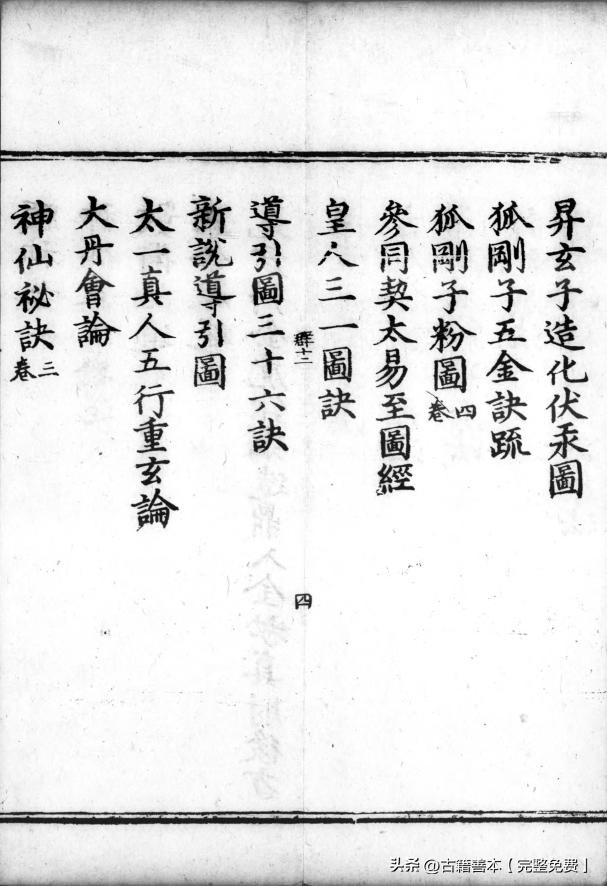 昇玄子造化伏汞圖
狐剛子五金訣疏
狐剛子粉圖四卷
參同契太易至圖經
皇人三一圖訣
群十二
四
導引圖三十六訣
新說導引圖
太一真人五行重玄論
大丹會論
神仙祕訣三卷
头条 @古籍善本【完整免费】